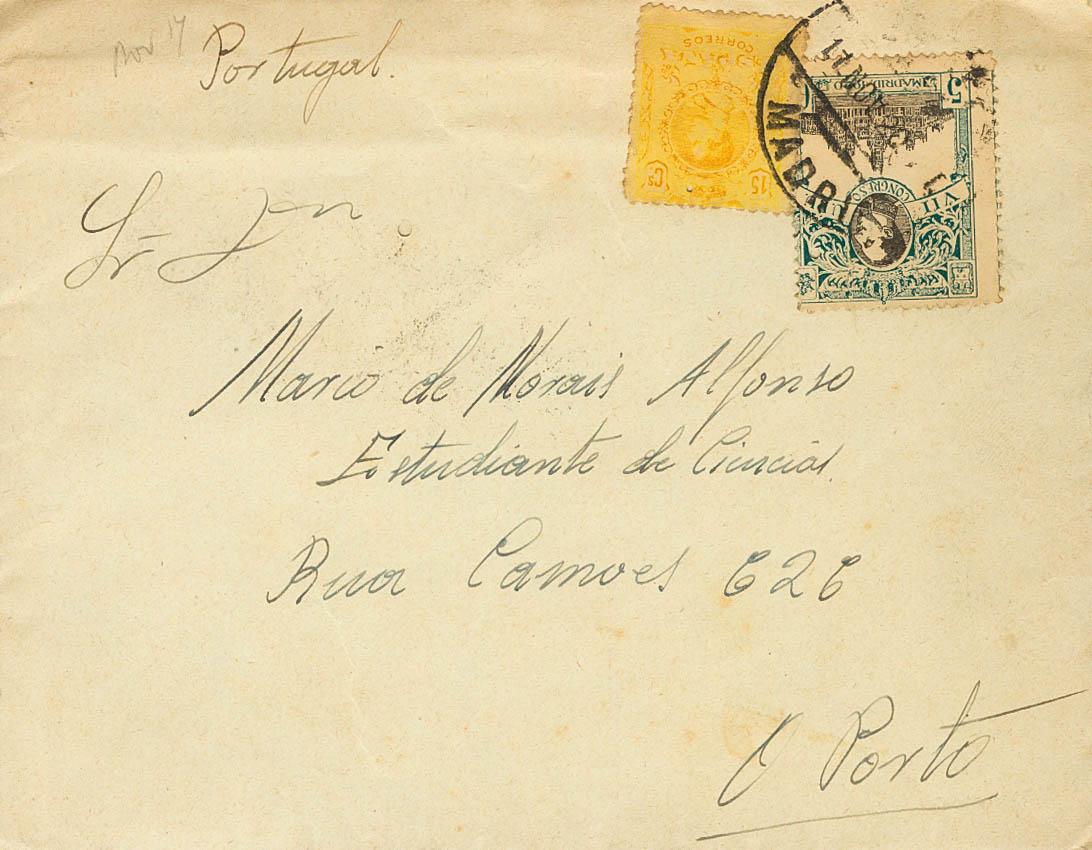 Nov 17
Portugal.
CORREOS
15 Cs
MADRID
5
MADRID 1920
VII CONGRESO U.P.
Sr Don
Mario de Morais Alfonso
Estudiante de Ciencias
Rua Camoes 626
O Porto